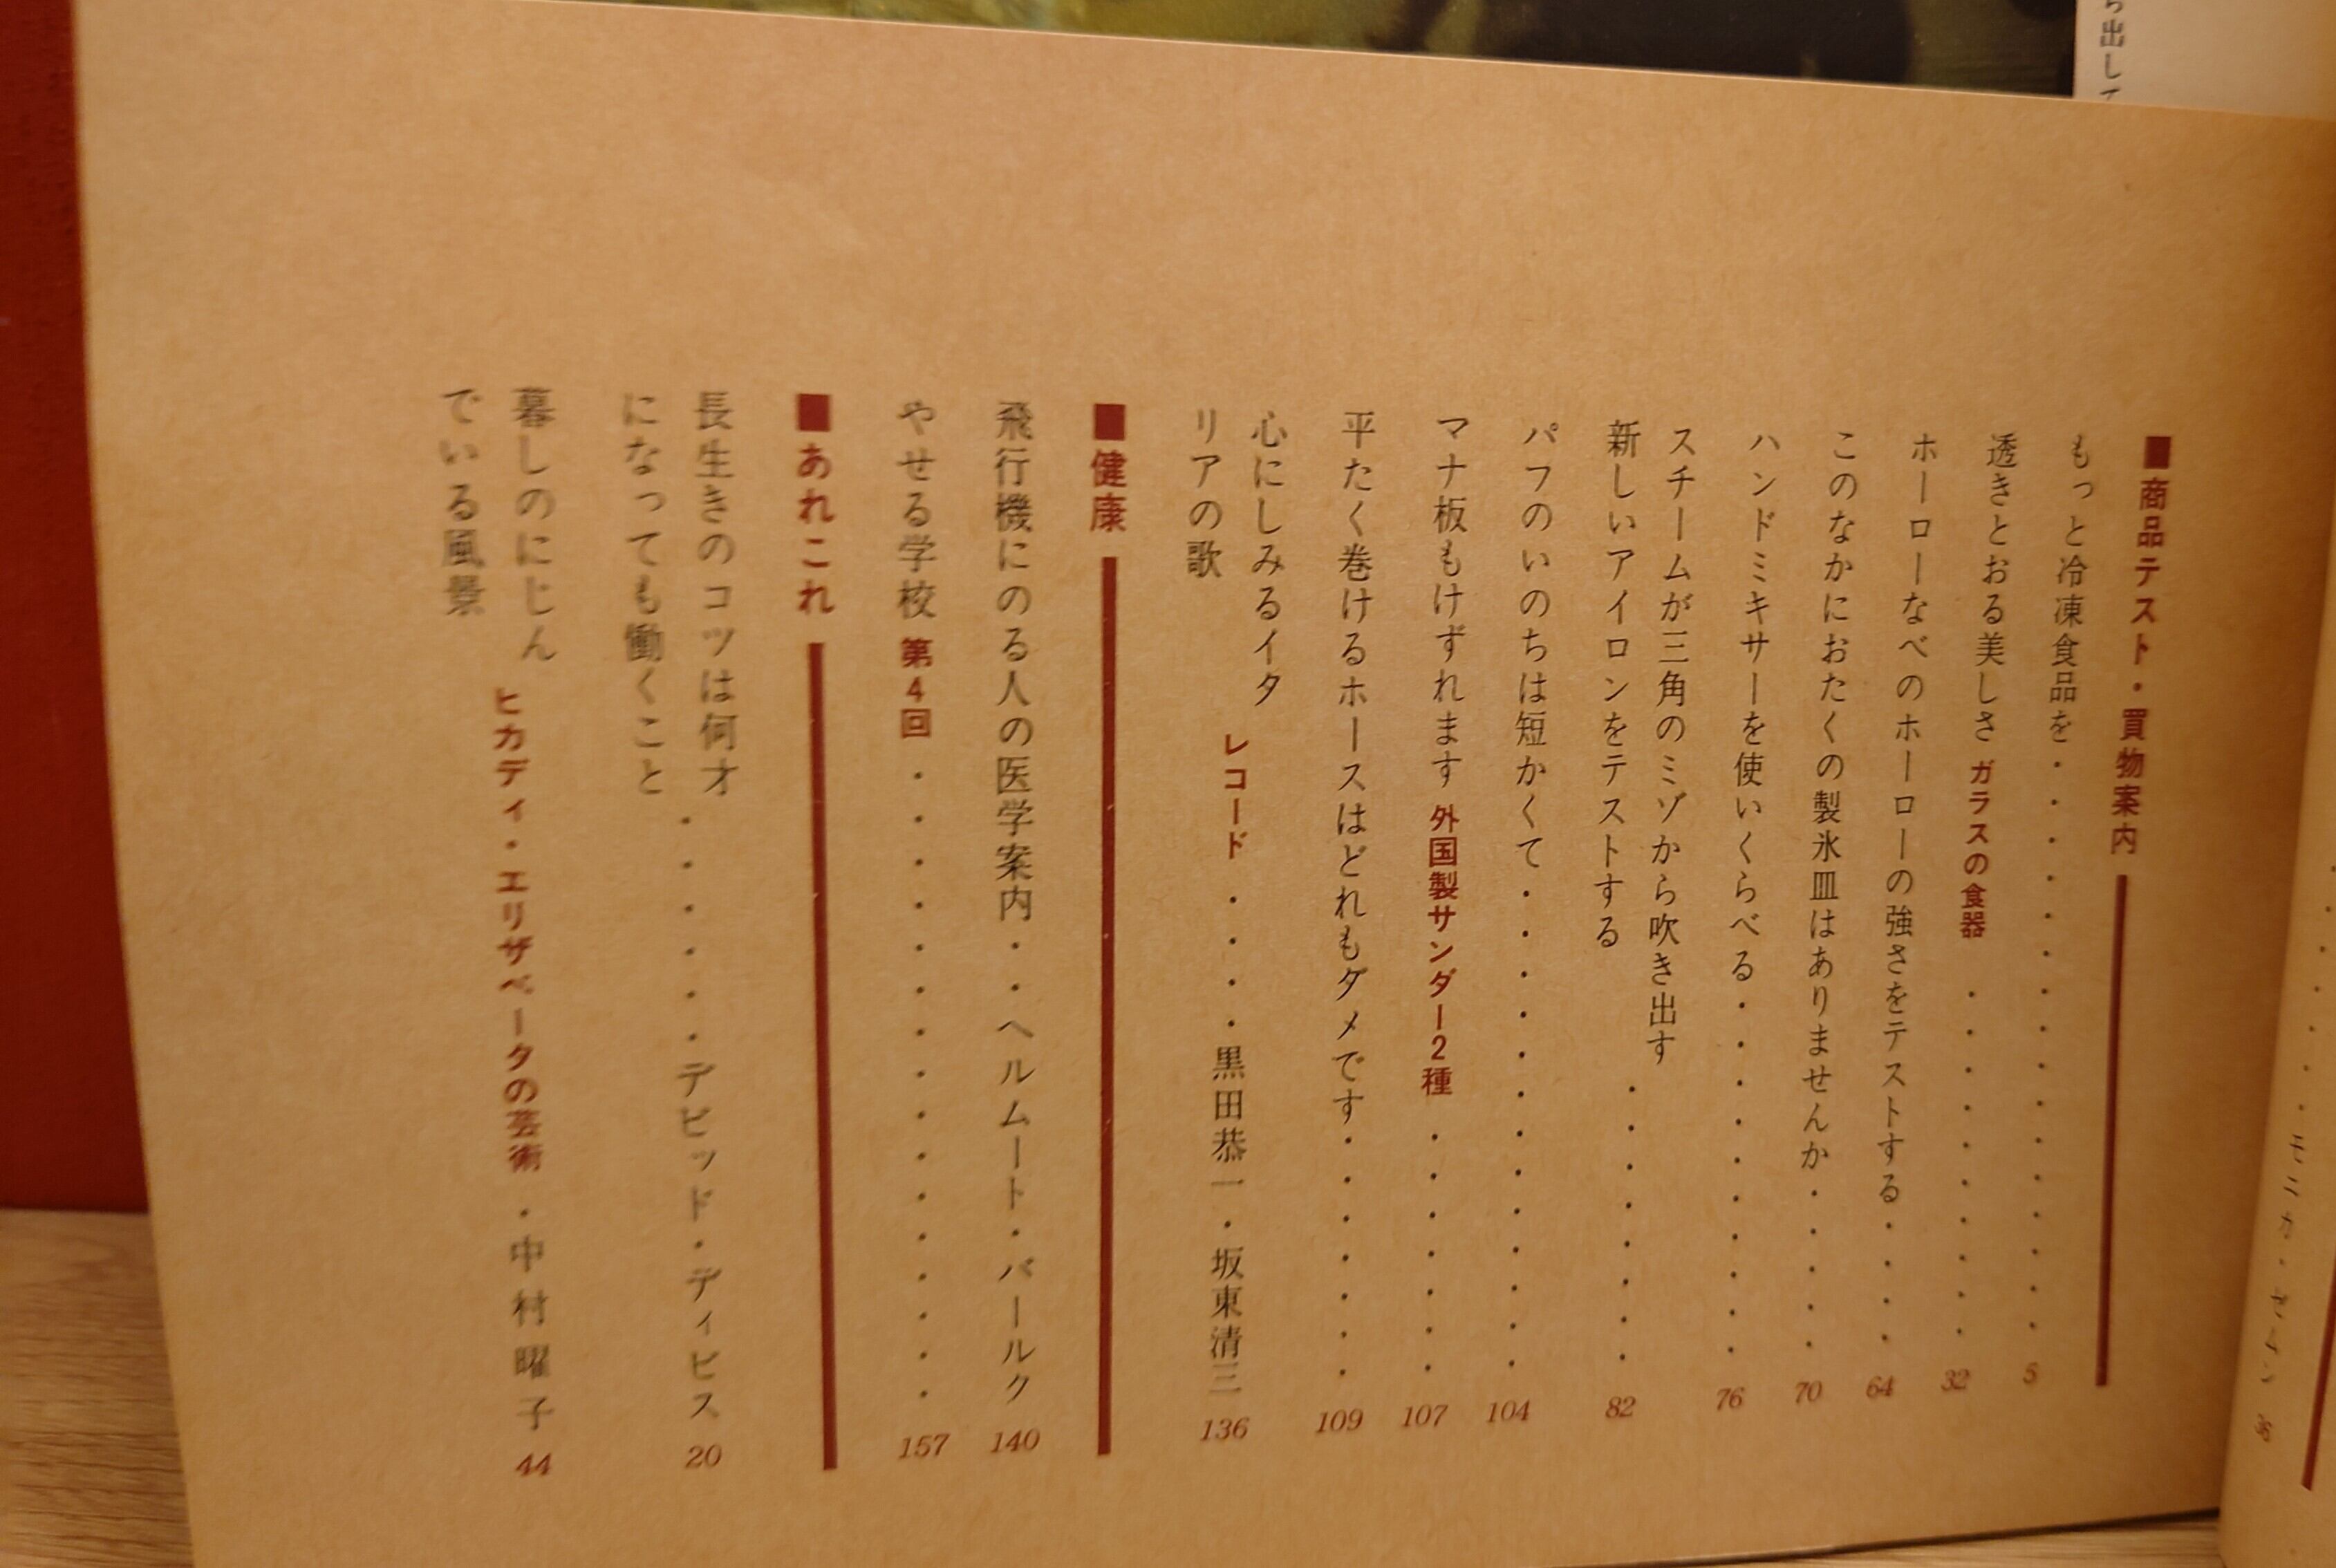 ら出して
モニカ・
■商品テスト・買物案内
もっと冷凍食品を・・・・・・・・・・・・・・・・5
透きとおる美しさ ガラスの食器 ・・・・・・・・・・32
ホーローなべのホーローの強さをテストする・・・・64
このなかにおたくの製氷皿はありませんか・・・・・70
ハンドミキサーを使いくらべる・・・・・・・・・・76
スチームが三角のミゾから吹き出す
新しいアイロンをテストする ・・・・・・・・82
パフのいのちは短かくて・・・・・・・・・・・・・104
マナ板もけずれます 外国製サンダー2種 ・・・・・・・107
平たく巻けるホースはどれもダメです・・・・・・・109
心にしみるイタ
リアの歌 レコード ・・・・黒田恭一・坂東清三 136
■健康
飛行機にのる人の医学案内・・ヘルムート・バールク 140
やせる学校 第4回 ・・・・・・・・・・・・・・・・157
■あれこれ
長生きのコツは何才
になっても働くこと ・・・・・・デビッド・ディビス 20
暮しのにじん
でいる風景 ヒカディ・エリザベータの芸術 ・中村曜子 44